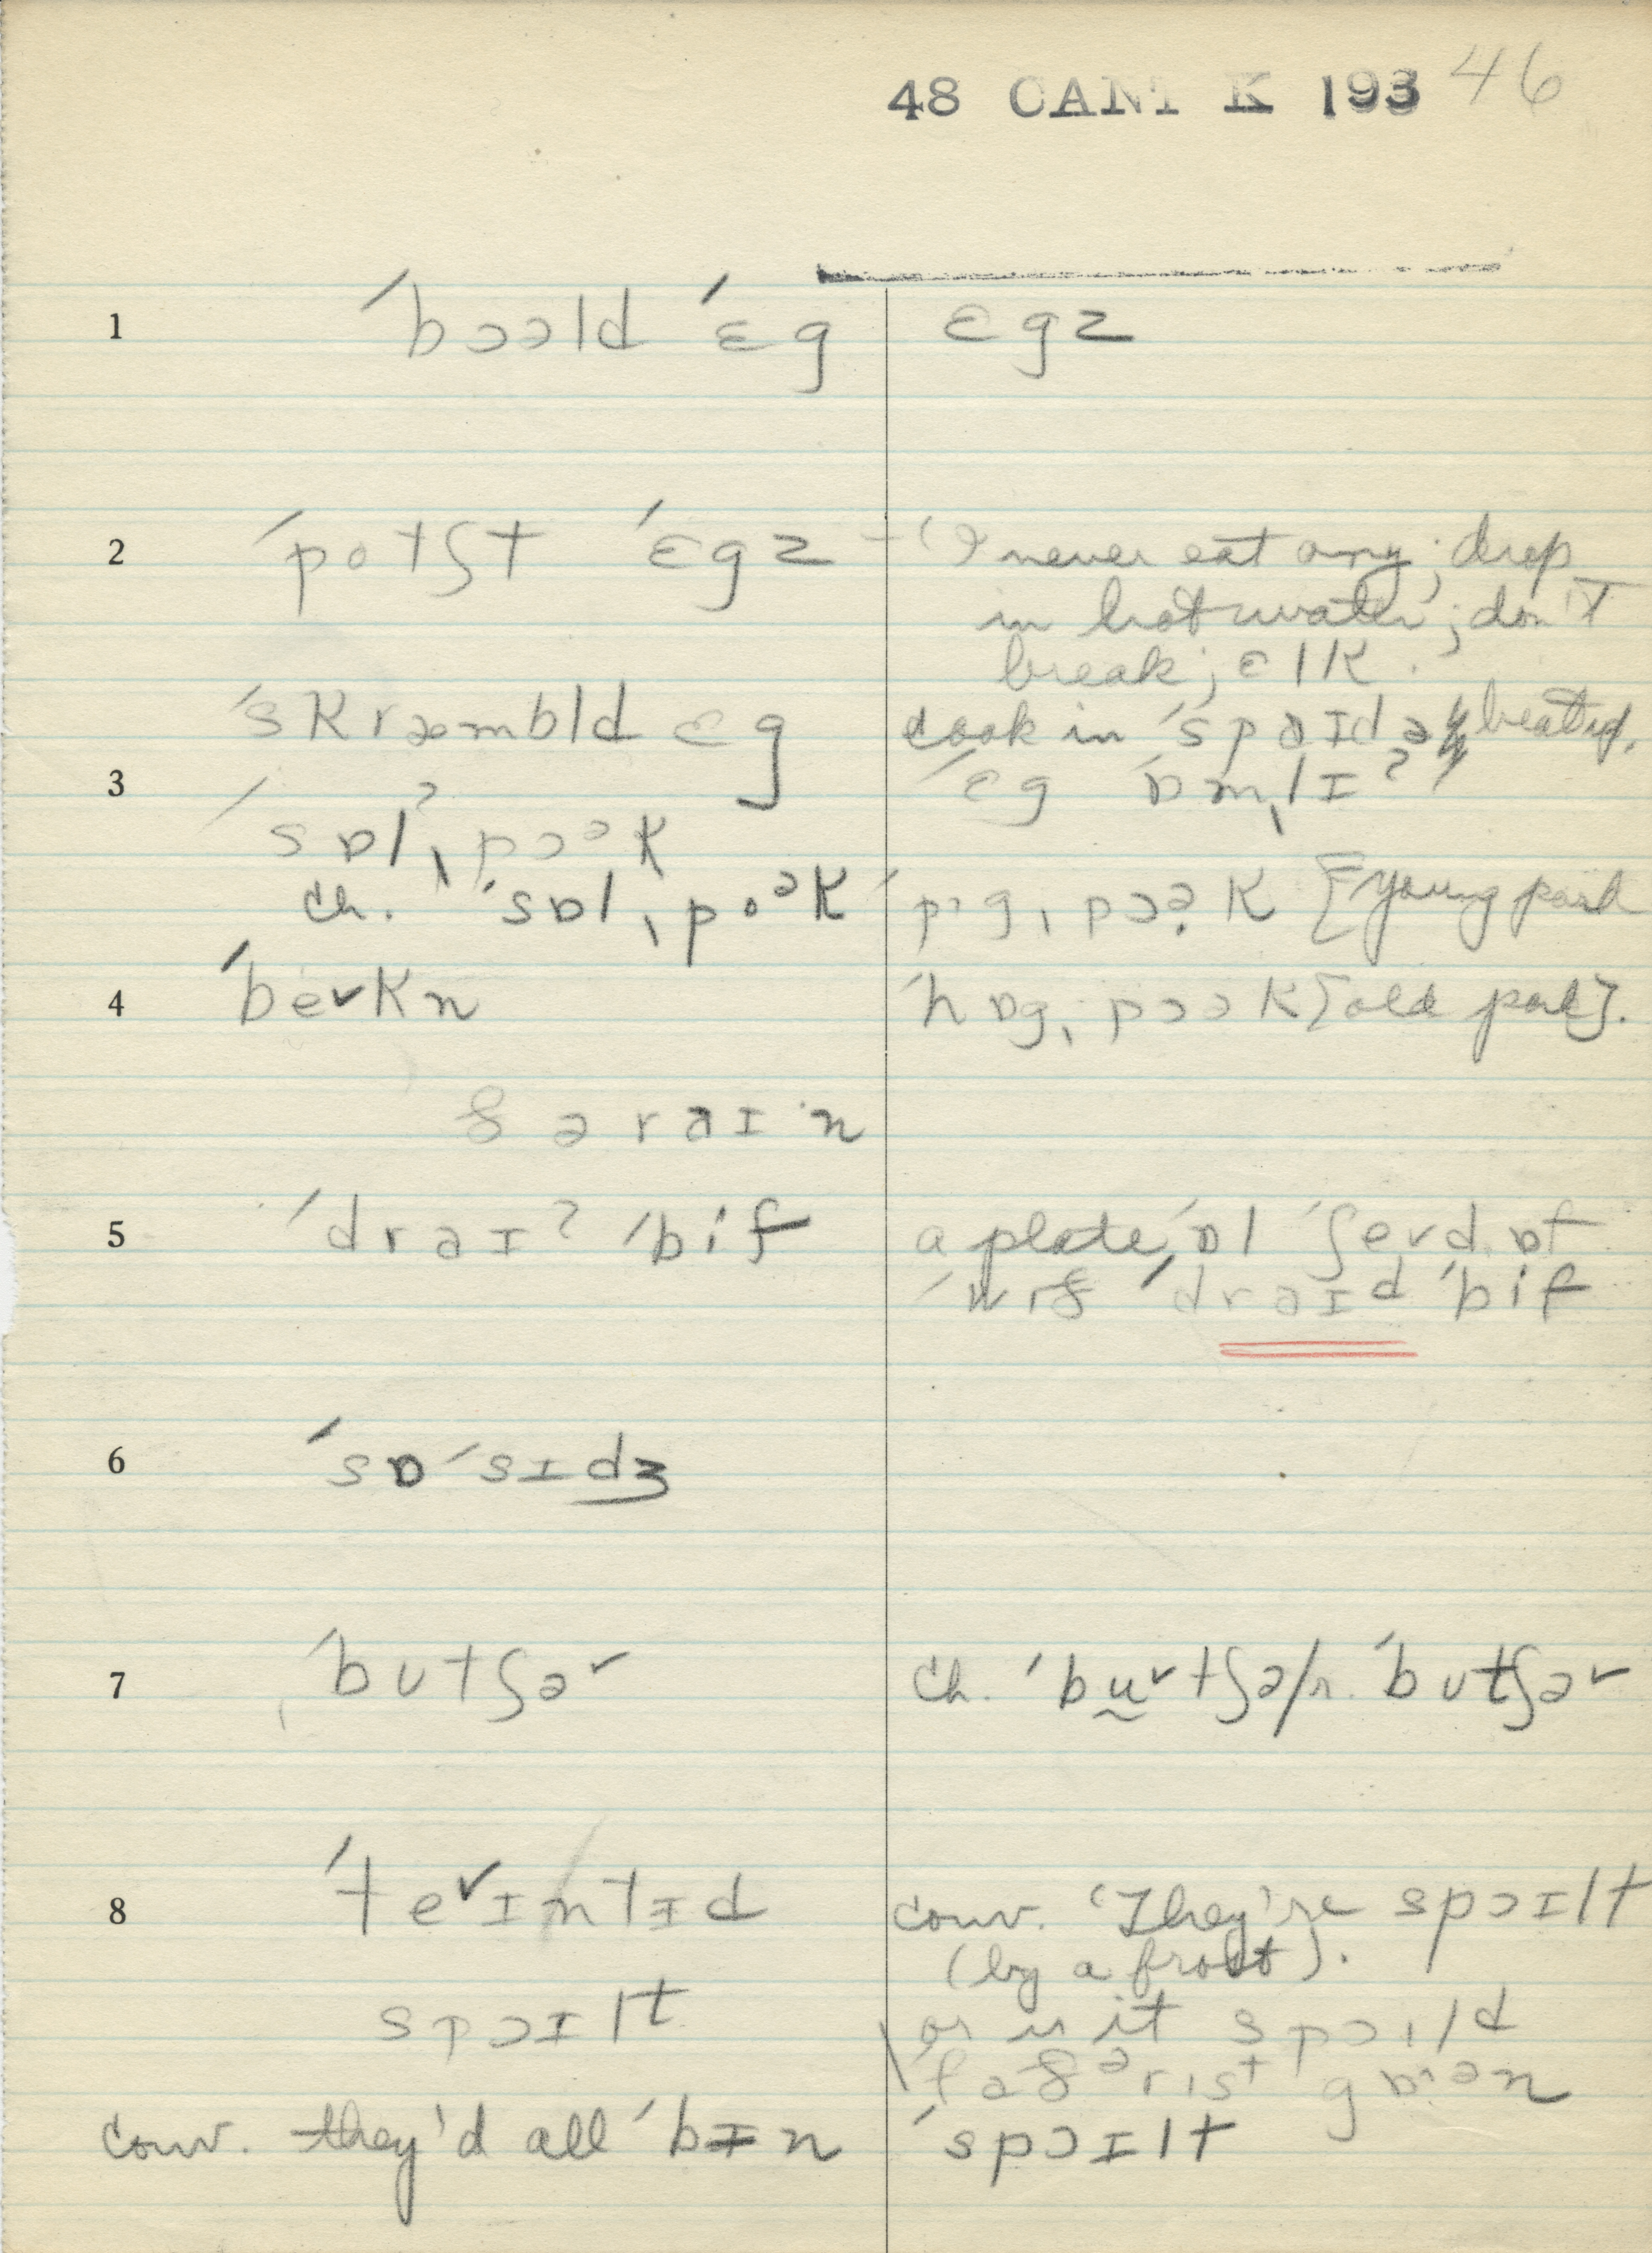 48 CANT K 193 46
1 ˈbɔəld ˈɛg ɛgz
2 ˈpotʃt ˈɛgz – 'I never eat any; drop
in hot water; don't
break; ɛlk.
ˈskræmbld ɛg cook in ˈspaɪdə beat up.
3 ˈɛg ˈɒmˌlɪʔ
ˈsɒlʔˌpɔək
ch. ˈsɒlˌpoək ˈpɪgˌpɔək [young pork
4 ˈbe˅kn ˈhɒgˌpɔək [old pork].
ðə raɪn
5 ˈdraɪʔ ˈbif a plate, ˈɒl ˈʃe˅vd ɒf
ˈwɪð ˈdraɪd ˈbif
6 ˈsɒˈsɪdʒ
7 ˈbutʃə˅ ch. ˈbu˅tʃə/r. ˈbutʃə˅
8 ˈte˅ɪntɪd conv. 'They're spɔɪlt
(by a frost).
spɔɪlt or is it spɔɪld
conv. they'd all ˈbɪn ˈspɔɪlt